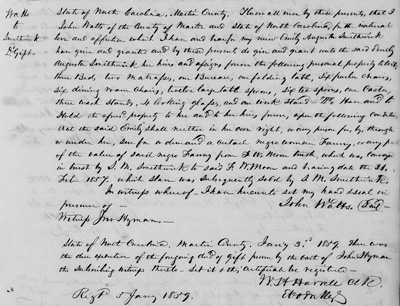 State of North Carolina, Martin County. Know all men by these presents, that I
Watts
to
Smithwick
D. Gift
John Watts of the County of Martin and State of North Carolina, for the natural
love and affection which I have and bear for my niece Emily Augusta Smithwick
have given and granted and by these presents do give and grant unto the said Emily
Augusta Smithwick her heirs and assigns forever the following personal property to wit:
three Beds, two Matrasses, one Bureau, one folding table, Six parlor Chairs,
six dining room chairs, twelve large table spoons, six tea spoons, one Castor,
three wash stands, 4 looking glasses, and one work Stand To Have and to
Hold the aforesd property to her and to her heirs forever, upon the following condition
that the said Emily shall neither in her own right, or any person for, by, through
or under her, sue for or demand a certain negro woman Fanny, or any part
of the value of said negro Fanny from F. W. Moore trust, which was conveyed
in trust by S. M. Smithwick to said F. W. Moore and bearing date the 21.
Feb. 1857, which slave was Subsequently Sold by S. M. Smithwick.
In witness whereof I have hereunto set my hand & seal in
presence of John Watts (Seal)
Witness Jno Hyman
State of North Carolina, Martin County, Jany 3rd 1859. Then was
the due execution of the foregoing deed of gift proven by the oath of John Hyman
the Subscribing witness thereto. Let it & this Certificate be registered
W. H. Harrell Clk.
Regt. 5 Jany 1859.